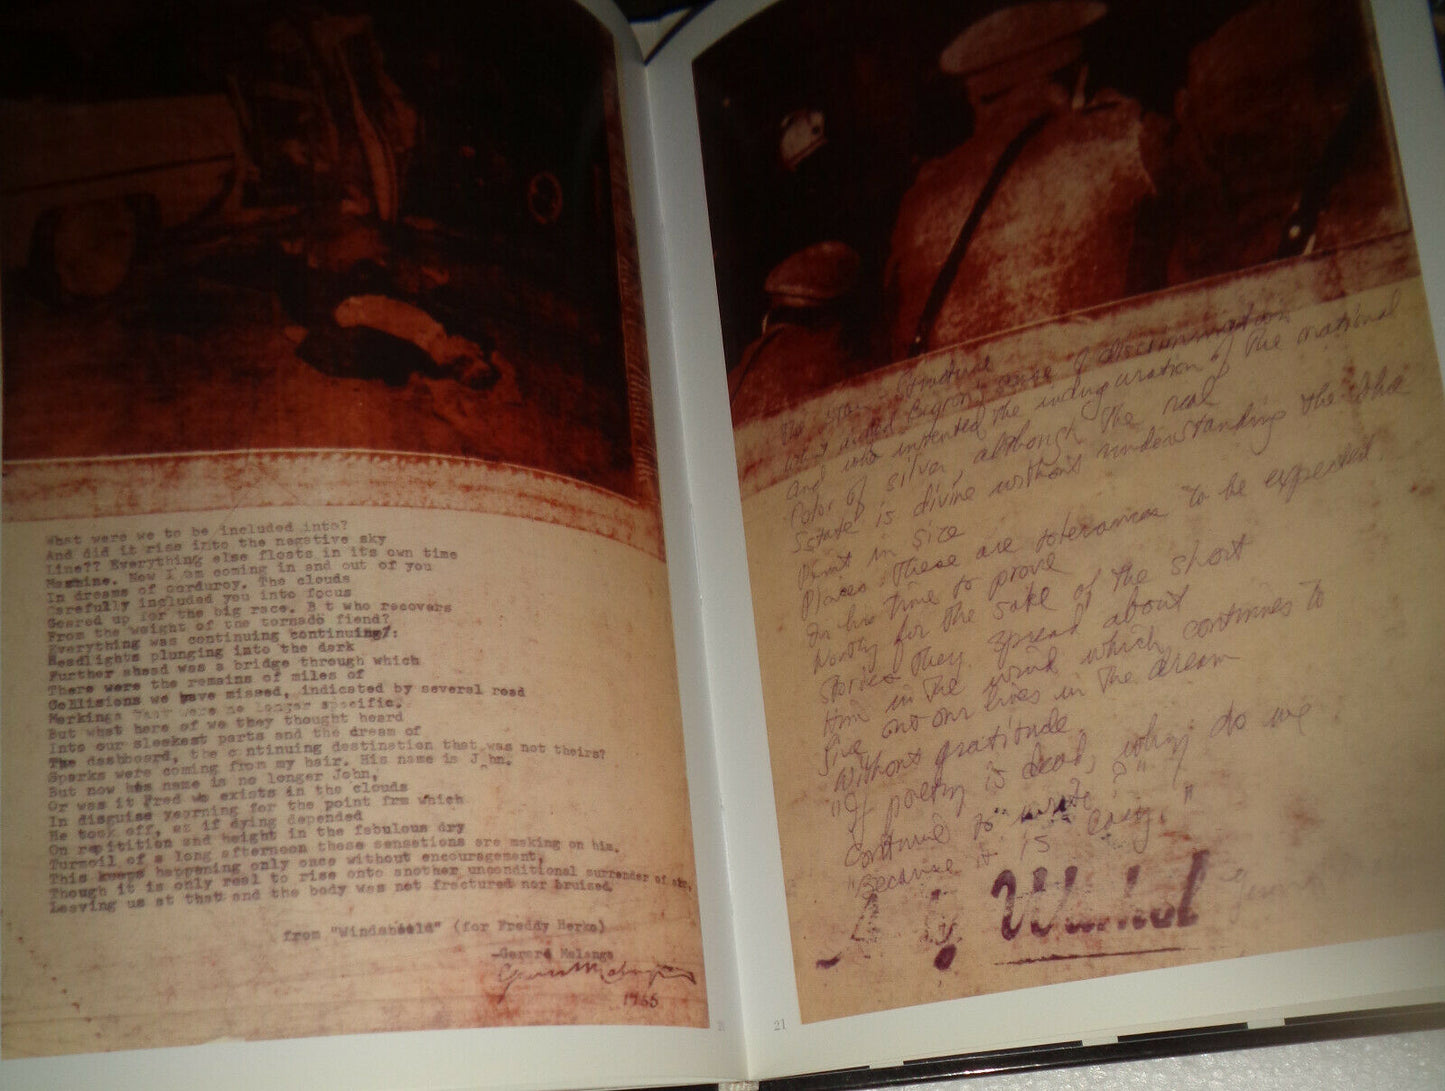 What were we to be included into?
And did it rise into the negative sky
Line?? Everything else floats in its own time
Machine. Now I am coming in and out of you
In dreams of corduroy. The clouds
Carefully included you into focus
Geared up for the big race. B t who recovers
From the weight of the tornado fiend?
Everything was continuing continuing?:
Headlights plunging into the dark
Further ahead was a bridge through which
There were the remains of miles of
Collisions we have missed, indicated by several road
Markings that were no longer specific.
But what here of we they thought heard
Into our sleekest parts and the dream of
The dashboard, the continuing destination that was not theirs?
Sparks were coming from my hair. His name is J hn.
But now his name is no longer John,
Or was it Fred we exists in the clouds
In disguise yearning for the point frm which
He took off, as if dying depended
On repitition and height in the fabulous dry
Turmoil of a long afternoon these sensations are making on him.
This keeps happening only once without encouragement,
Though it is only real to rise onto another unconditional surrender of sky,
Leaving us at that and the body was not fractured nor bruised
from "Windshield" (for Freddy Herko)
-Gerard Malanga
Gerard Malanga
1966
structure
what aided Byron's sense of discrimination
And who invented the inauguration of the national
Color of silver, although the real
Estate is divine without understanding the
Print in size
Places these are tolerances to be expected
In time to prove
Worthy for the sake of the short
Stories they spread about
Him in the wind which continues to
Live out our lives in the dream
Without gratitude
"If poetry is dead, why do we
Continue to write?"
"Because it is easy."
Warhol
21